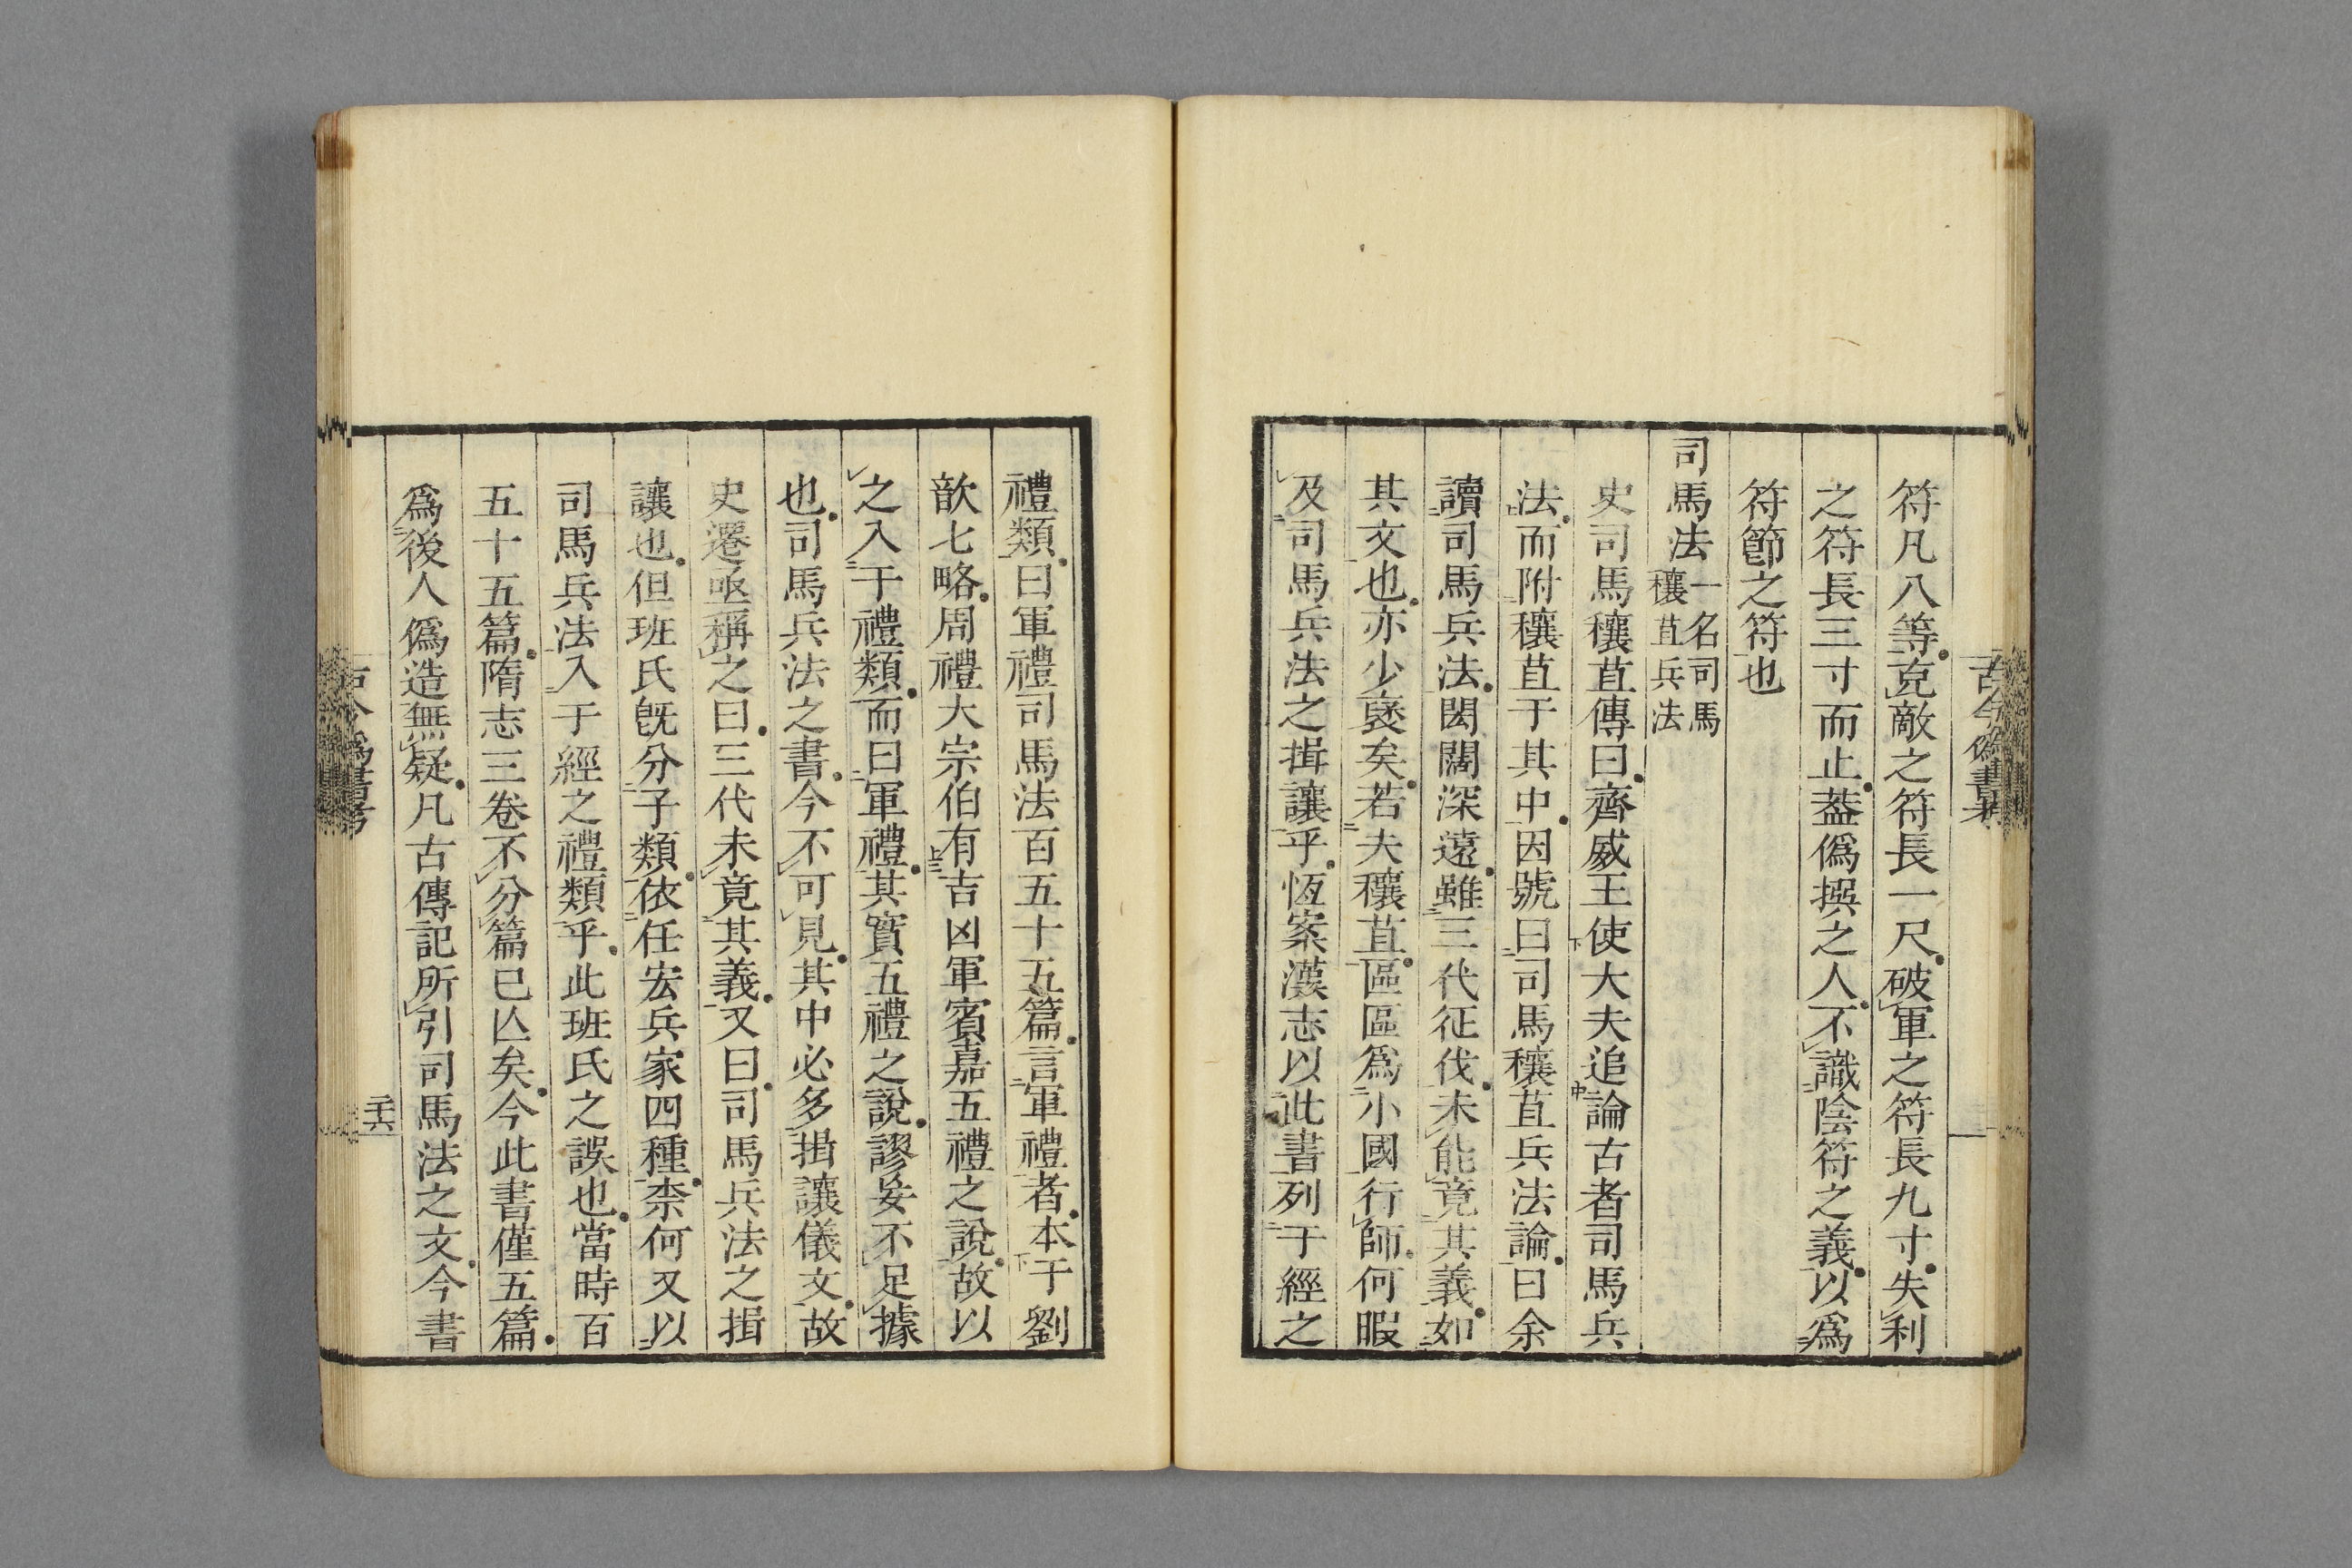 古今僞書考
符凡八等克敵之符長一尺破軍之符長九寸失利
之符長三寸而止葢僞撰之人不識陰符之義以爲
符節之符也
司馬法一名司馬穰苴兵法
史司馬穰苴傳曰齊威王使大夫追論古者司馬兵
法而附穰苴于其中因號曰司馬穰苴兵法論曰余
讀司馬兵法閎闊深遠雖三代征伐未能竟其義如
其文也亦少襃矣若夫穰苴區區爲小國行師何暇
及司馬兵法之揖讓乎恆案漢志以此書列于經之
禮類曰軍禮司馬法百五十五篇言軍禮者本于劉
歆七略周禮大宗伯有吉凶軍賓嘉五禮之說故以
之入于禮類而曰軍禮其實五禮之說謬妄不足據
也司馬兵法之書今不可見其中必多揖讓儀文故
史遷亟稱之曰三代未竟其義又曰司馬兵法之揖
讓也但班氏旣分子類依任宏兵家四種柰何又以
司馬兵法入于經之禮類乎此班氏之誤也當時百
五十五篇隋志三卷不分篇已亾矣今此書僅五篇
爲後人僞造無疑凡古傳記所引司馬法之文今書
古今僞書考
二十六